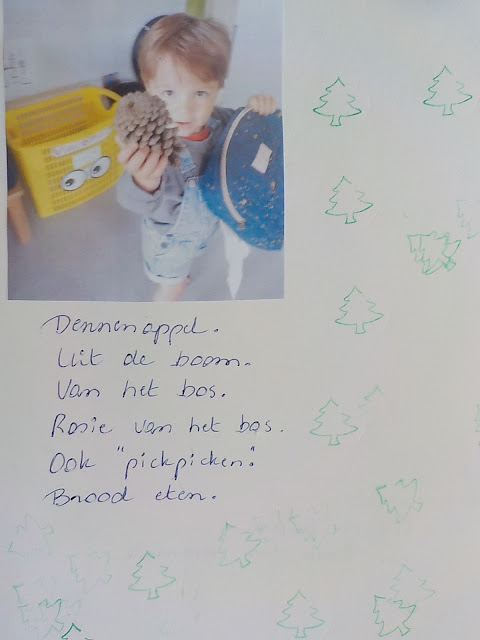 Dennenappel.
Uit de boom.
Van het bos.
Rosie van het bos.
Ook "pickpicken".
Brood eten.